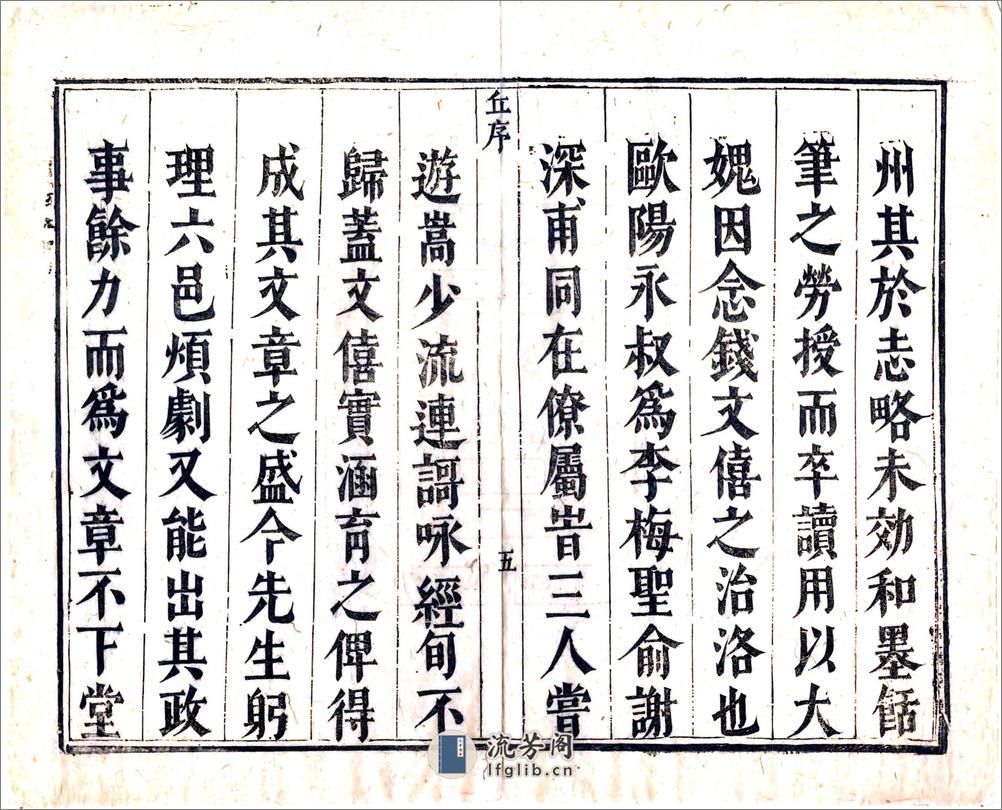 州其於志略未効和墨餂
筆之勞授而卒讀用以大
媿因念錢文僖之治洛也
歐陽永叔爲李梅聖俞謝
深甫同在僚屬旹三人嘗
丘序
五
遊嵩少流連謌咏經旬不
歸蓋文僖實涵育之俾得
成其文章之盛今先生躬
理六邑煩劇又能出其政
事餘力而爲文章不下堂
流芳阁
lfglib.cn